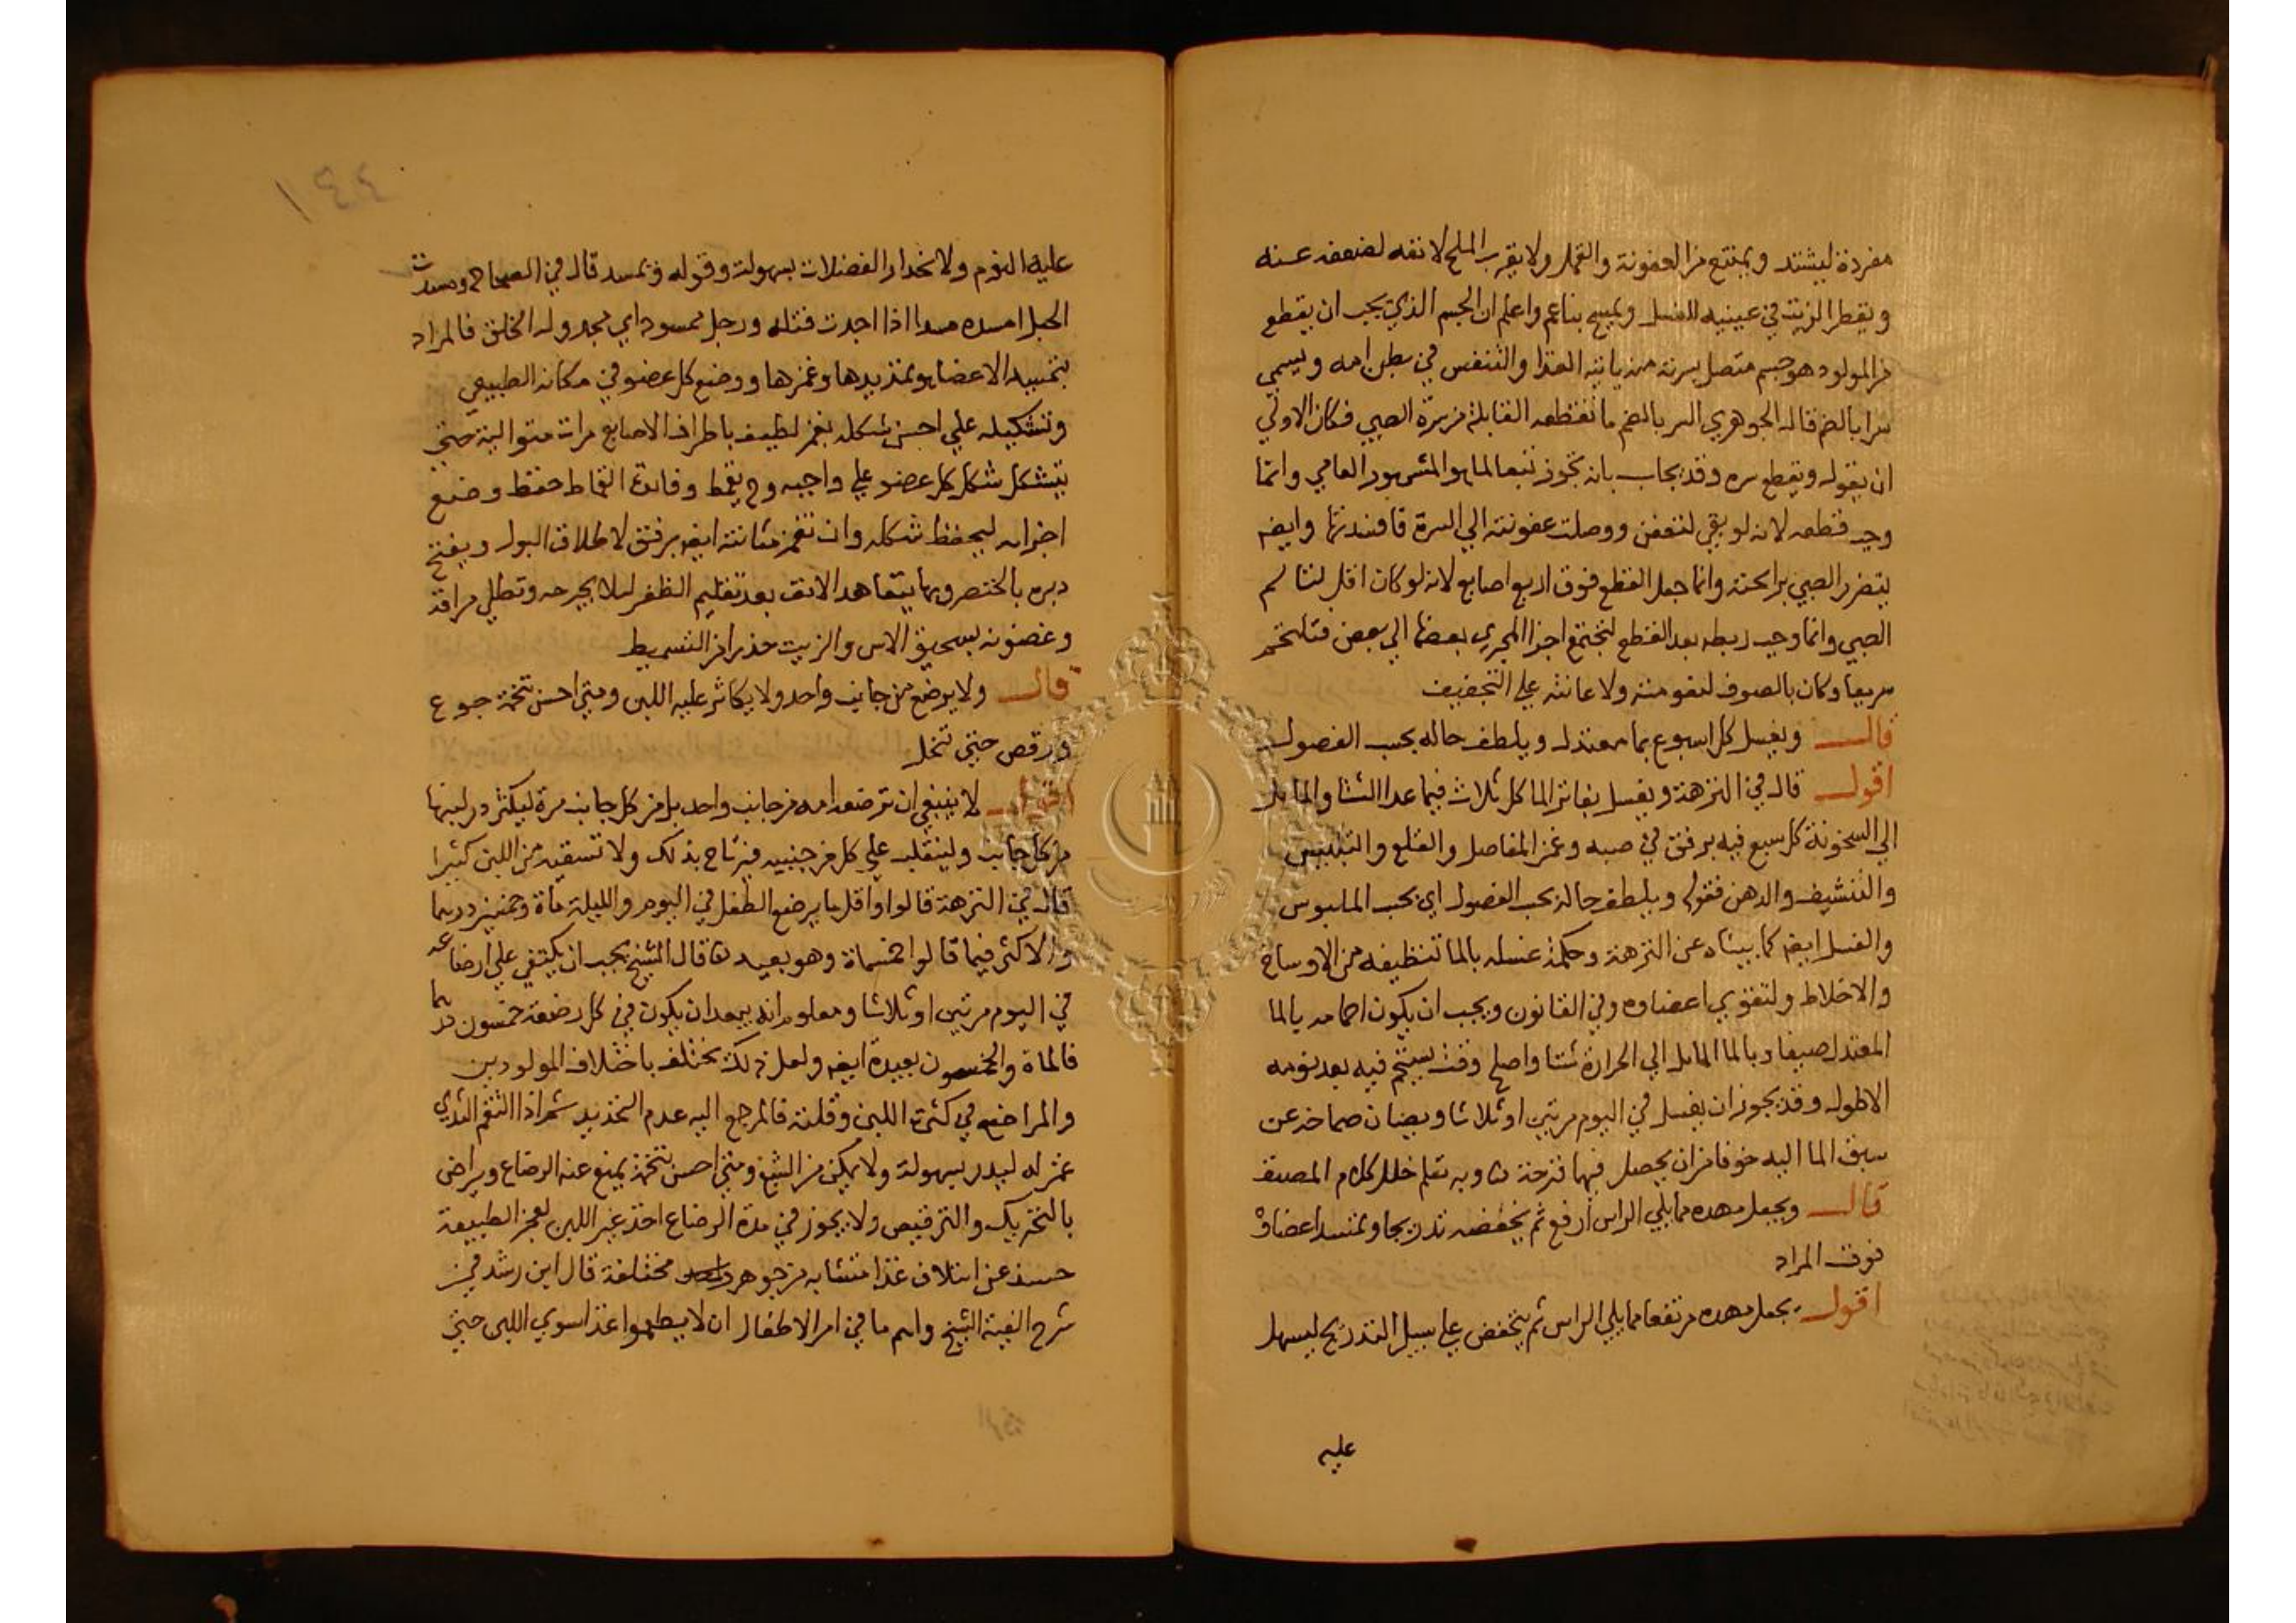 مفردة ليشتد ويمتنع من العفونة والقمل ولا يقرب الملح لانفه لضعفه عنه
ويقطر الزيت في عينيه للغسل ويمسح بناعم واعلم ان الجسم الذي يجب ان يقطع
من المولود هو جسم متصل بسرته منه ياتيه الغذا والتنفس في بطن امه ويسمي
سرا بالضم قاله الجوهري السر بالضم ما تقطعه القابلة من سرة الصبي فكان الاولي
ان يقول ويقطع سره وقد يجاب بانه تجوز تبعا لما هو المشهور العامي وانما
وجب قطعه لانه لو بقي لتعفن ووصلت عفونته الي السرة فافسدتها وايضم
يتضرر الصبي برايحته وانما جعل القطع فوق اربع اصابع لانه لو كان اقل لتالم
الصبي وانما وجب ربطه بعد القطع لتجتمع اجزا المجري بعضها الي بعض فتلتحم
سريعا وكان بالصوف لنعومته ولاعانته علي التجفيف
قال ويغسل كل اسبوع بما معتدل ويلطف حاله بحسب الفصول
اقول قال في النزهة ويغسل بفاتر الما كل ثلاث فيما عدا الشتا والمايل
الي السخونة كل سبع فيه برفق في صبه وغمز المفاصل والقلع والتلبيس
والتنشيف والدهن فقوله ويلطف حاله بحسب الفصول اي بحسب الملبوس
والغسل ايضم كما بيناه عن النزهة وحكمة غسله بالما تنظيفه من الاوساخ
والاخلاط ولتقوي اعضاوه وفي القانون ويجب ان يكون احمامه بالما
المعتدل صيفا وبالما المايل الي الحرارة شتا واصلح وقت يستحم فيه بعد نومه
الاطول وقد يجوز ان يغسل في اليوم مرتين او ثلاثا ويصان صماخه عن
سبق الما اليه خوفا من ان يحصل فيها قرحة ة وبه تعلم خلل كلام المصنف
قال ويجعل مهده مما يلي الراس ارفع ثم يخفضه تدريجا وتمسد اعضاؤ
فوق المراد
اقول يجعل مهده مرتفعا مما يلي الراس ثم يخفض علي سبيل التدريج ليسهل
عليه
١٤٤
عليه النوم ولانحدار الفضلات بسهولة وقوله وتمسد قال في الصحاح ومسدت
الحبل امسده مسدا اذا اجدت فتله ورجل ممسود اي مجدول الخلق فالمراد
بتمسيد الاعضا هو تمديدها وغمزها ووضع كل عضو في مكانه الطبيعي
وتشكيله علي احسن شكله بغمز لطيف باطراف الاصابع مرات متوالية حتي
يتشكل شكل كل عضو علي واجبه وح يقمط وفايدة القماط حفظ وضع
اجزايه ليحفظ شكله وان تغمز مثانته ايضم برفق لاطلاق البول ويفتح
دبره بالخنصر وبها يتعاهد الانف بعد تقليم الظفر ليلا يجرحه وتطلي مراقه
وغضونه بسحيق الاس والزيت حذرا من التسميط
قال ولا يرضع من جانب واحد ولا يكاثر عليه اللبن ومتي احسن تخمة جوع
ورقص حتي تنحل
اقول لا ينبغي ان ترضعه امه من جانب واحد بل من كل جانب مرة ليكثر در لبنها
من كل جانب ولينقلب علي كل من جنبيه فيرتاح بذلك ولا تسقيه من اللبن كثيرا
قال في النزهة قالوا واقل ما يرضع الطفل في اليوم والليلة ماة وخمسين درهما
والاكثر فيما قالوا خمسماة وهو بعيد ة قال الشيخ يجب ان يكتفي علي ارضاعه
في اليوم مرتين او ثلاثا ومعلوم انه يبعد ان يكون في كل رضعة خمسون درهما
فالماة والخمسون بعيدة ايضم ولعل ذلك يختلف باختلاف المولودين
والمراضع في كثرة اللبن وقلته فالمرجع اليه عدم التحديد ثم اذا التقم الثدي
غمز له ليدر بسهولة ولا يمكن من الشبع ومتي احسن بتخمة يمنع عنه الرضاع ويراض
بالتحريك والترقيص ولا يجوز في مدة الرضاع اخذ غير اللبن لعجز الطبيعة
عن ايتلاف غذا متشابه من جوهر مختلفة قال ابن رشد في
شرح الفية الشيخ واهم ما في امر الاطفال ان لا يطعموا غذا سوي اللبن حتي